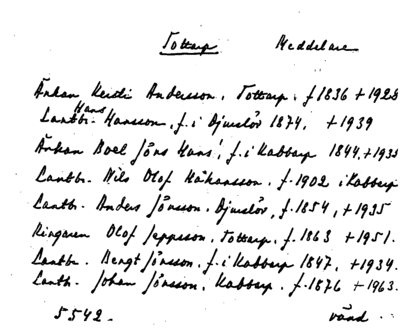 Tottarp Meddelare
Änkan Kersti Andersson, Tottarp, f. 1836 + 1928
Lantbr. Hans Hansson, f. i Djurslöv 1874, + 1939
Änkan Boel Jöns Hans', f. i Kabbarp 1844, + 1933
Lantbr. Nils Olof Håkansson, f. 1902 i Kabbarp
Lantbr. Anders Jönsson, Djurslöv, f. 1854, + 1935
Ringaren Olof Jeppsson, Tottarp, f. 1863 + 1951.
Lantbr. Bengt Jönsson, f. i Kabbarp 1847, + 1934.
Lantb. Johan Jönsson, Kabbarp, f. 1876 + 1963.
5542. vänd.